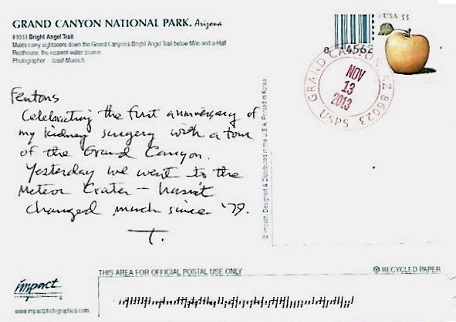 GRAND CANYON NATIONAL PARK, Arizona
#1033 Bright Angel Trail
Mules carry sightseers down the Grand Canyon's Bright Angel Trail below Mile-and-a-Half
Resthouse, the nearest water source.
Photographer Josef Muench
USA 33
4562
GRAND CANYON, AZ 86023
NOV
13
2013
USPS
Fentons
Celebrating the first anniversary of
my kidney surgery with a tour
of the Grand Canyon.
Yesterday we went to the
Meteor Crater – hasn't
changed much since '79.
T.
© Impact, Designed & Distributed in the U.S.A. Printed in Korea
THIS AREA FOR OFFICIAL POSTAL USE ONLY
RECYCLED PAPER
impact
www.impactphotographics.com